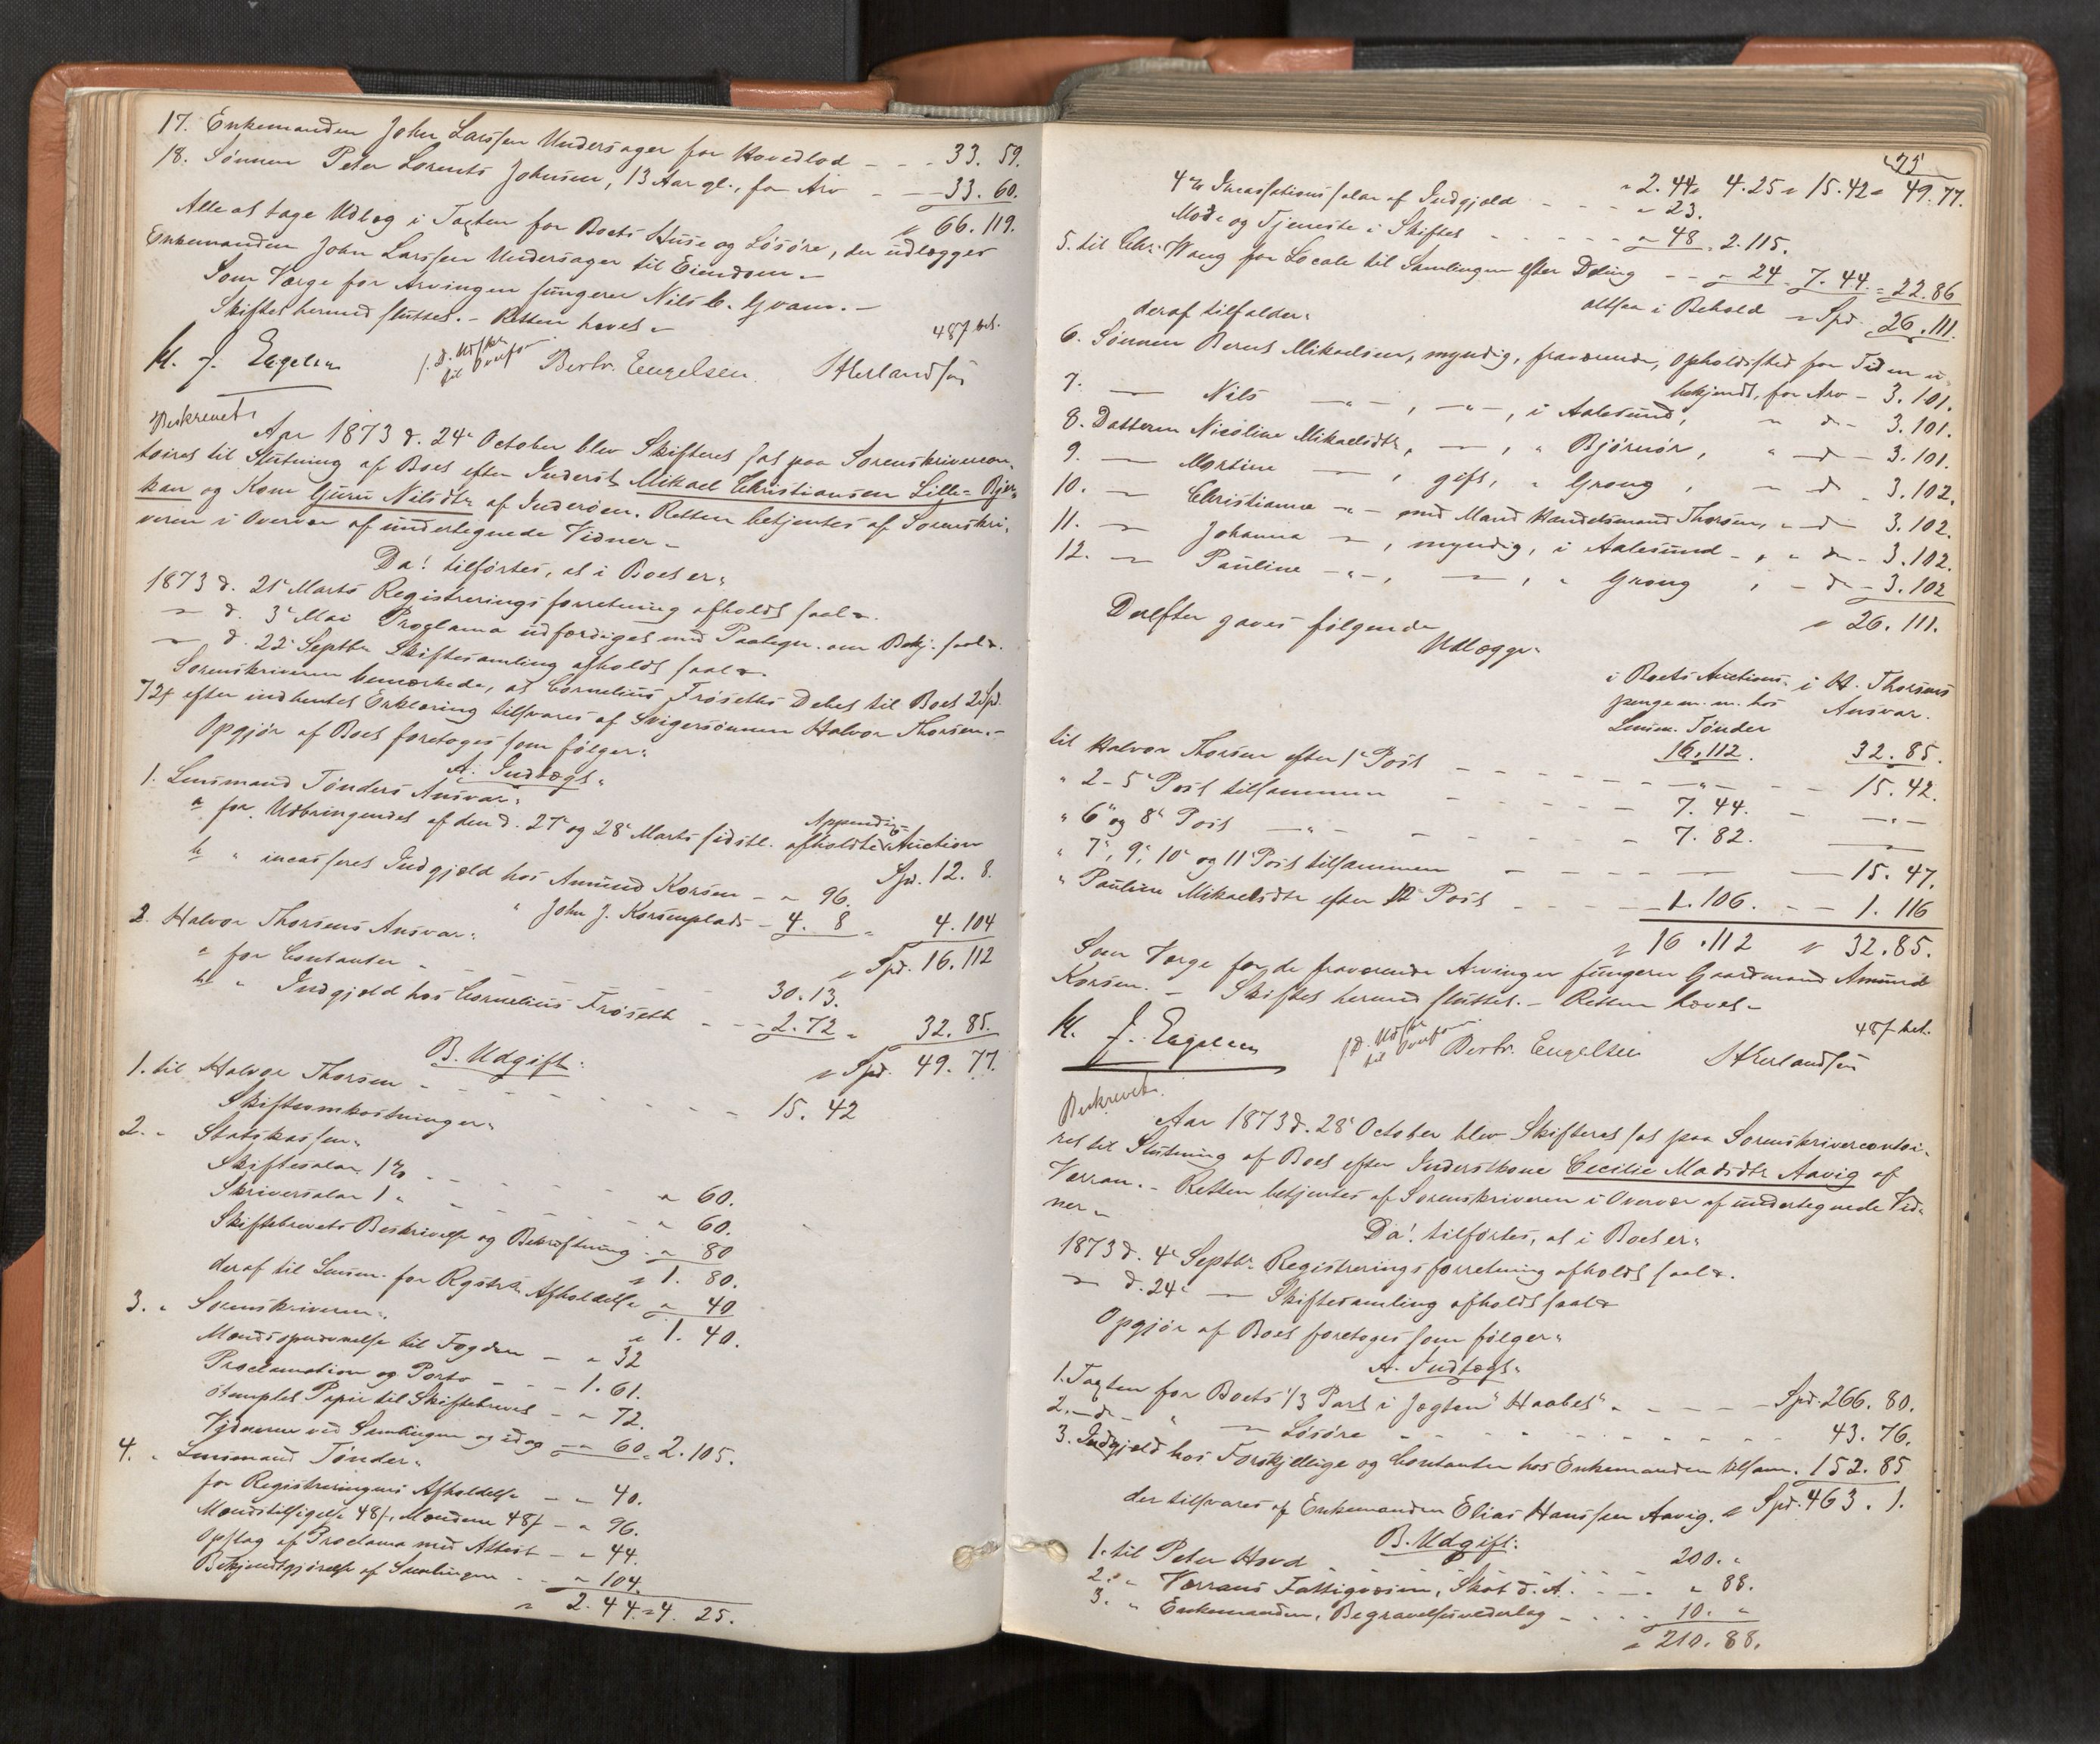 17. Enkemanden John Larssen Undersager for Hovedlod - - - 33. 59.
18. Sønnen Peter Lorents Johnsen, 13 Aar gl., for Arv - - 33. 60.
" 66. 119.
Alle at tage Udlæg i Taxten for Boets Huse og Løsøre, der udlægges
Enkemanden John Larssen Undersager til Eiendom.-
Som Værge for Arvingen fungerer Nils C. Gvam.-
Skiftet hermed sluttet.- Retten hævet.-
48ß bet.
H. J. Engelsen Bertr. Engelsen. SHerlandsen
Beskrevet
Aar 1873 d. 24de October blev Skifteret sat paa Sorenskrivercon-
toiret til Slutning af Boet efter Inderst Mikael Christiansen Lille-Bjer-
kan og Kone Guru Nilsdtr af Inderøen. Retten betjentes af Sorenskri-
veren i Overvær af undertegnede Vidner.-
Da! tilførtes, at i Boet er:
1873 d. 21de Marts Registreringsforretning afholdt saal.
— d. 3de Mai Proclama udfærdiget med Paategn. om Bekj. saal.
— d. 22de Septbr Skiftesamling afholdt saal.
Sorenskriveren bemærkede, at Cornelius Frøseths Debet til Boet 2 Spd.
72ß efter indhentet Erklæring tilsvares af Svigersønnen Halvor Thorsen.-
Opgjør af Boet foretoges som følger:
A. Indtægt:
1. Lensmand Tønders Ansvar:
a for Udbringendet af den d. 27de og 28de Marts sidstl. afholdte Auction
Appendix
Spd. 12. 8.
b " incasseret Indgjæld hos Amund Korsen - " 96.
" John J. Korsenplads - 4. 8 " 4. 104
" Spd. 16. 112
2. Halvor Thorsens Ansvar:
a for Contanter - - - 30. 13.
b " Indgjæld hos Cornelius Frøseth - - - 2. 72 " 32. 85.
" Spd. 49. 77.
B. Udgift:
1. til Halvor Thorsen - - - - 15. 42
Skifteomkostninger:
2. " Statskassen:
Skiftesalær 1% - - - " 60.
Skriversalær 1 " - - - " 60.
Skiftebrevets Beskrivelse og Bekræftning - " 80
" 1. 80.
deraf til Lensm. for Rgstr. Afholdelse " 40
" 1. 40.
3. " Sorenskriveren:
Mændsopnævnelse til Fogden - " 32
Proclamation og Porto - - - 1. 61.
stemplet Papir til Skiftebrevet - " 72.
Vidnerne ved Samlingen og idag - " 60. " 2. 105.
4. " Lensmand Tønder:
for Registreringens Afholdelse - - " 40.
Mændstilsigelse 48ß, Mændene 48ß - " 96.
Opslag af Proclama med Attest - " 44.
Bekjendtgjørelse af Samlingen - - " 104.
" 2. 44. " 4. 25.
75
" 2. 44 " 4. 25 " 15. 42 " 49. 77.
4% Incassationssalær af Indgjæld - - - " 23.
Møde og Tjeneste i Skiftet - - - " 48. 2. 115.
5. til Chr. Wang for Locale til Samlingen efter Deling - - " 24 - 7. 44. " 22. 86
altsaa i Behold " Spd. 26. 111.
deraf tilfalder:
6. Sønnen Bernt Mikaelsen, myndig, fraværende, Opholdssted for Tiden u-
bekjendt, for Arv - 3. 101.
7. — Nils — " —, — " —, i Aalesund, " d - 3. 101.
8. Datteren Nicoline Mikaelsdtr, —, " Bjørnør, " d - 3. 101.
9. — Martine —, gift, " Grong, " d - 3. 102.
10. — Christianna — " — med Mand Handelsmand Thorsen, " d - 3. 102.
11. — Johanna —, myndig, i Aalesund - " " d - 3. 102.
12. — Pauline — " —, —, " Grong, - d - 3. 102
" 26. 111.
Derefter gaves følgende
Udlægge:
i Boets Auctions- i H. Thorsens
penge m. m. hos Ansvar.
Lensm. Tønder
16. 112. 32. 85.
til Halvor Thorsen efter 1ste Post - - - " - - 15. 42.
" 2-5te Post tilsammen - - - 7. 44. - " -
" 6te og 8de Post — " — - - - 7. 82. —
" 7de, 9de, 10de og 11te Post tilsammen - - - — 15. 47.
" Pauline Mikaelsdtr efter 12 Post - - - 1. 106. - - 1. 116
" 16. 112 " 32. 85.
Som Værge for de fraværende Arvinger fungerer Gaardmand Amund
Korsen.- Skiftet hermed sluttet.- Retten hævet.-
48ß bet.
H. J. Engelsen Bertr. Engelsen SHerlandsen
Beskrevet.
Aar 1873 d. 28de October blev Skifteret sat paa Sorenskrivercontoi-
ret til Slutning af Boet efter Inderstkone Cecilie Madsdtr Aavig af
Værran.- Retten betjentes af Sorenskriveren i Overvær af undertegnede Vid-
ner.-
Da! tilførtes, at i Boet er:
1873 d. 4de Septbr Registreringsforretning afholdt saal.
— d. 24de — Skiftesamling afholdt saal.
Opgjør af Boet foretoges som følger:
A. Indtægt:
1. Taxten for Boets 1/3 Part i Jægten "Haabet" - - - - Spd. 266. 80.
2. — d — " — Løsøre - - - - 43. 76.
3. Indgjæld hos Forskjellige og Contanter hos Enkemanden tilsam. 152. 85
der tilsvares af Enkemanden Elias Hanssen Aavig. " Spd. 463. 1.
B. Udgift:
1. til Peter Hovd - - - 200. "
2. " Værrans Fattigvæsen, Skat d. A. - - - " 88.
3. " Enkemanden, Begravelsesvederlag - - - 10. "
" 210. 88.